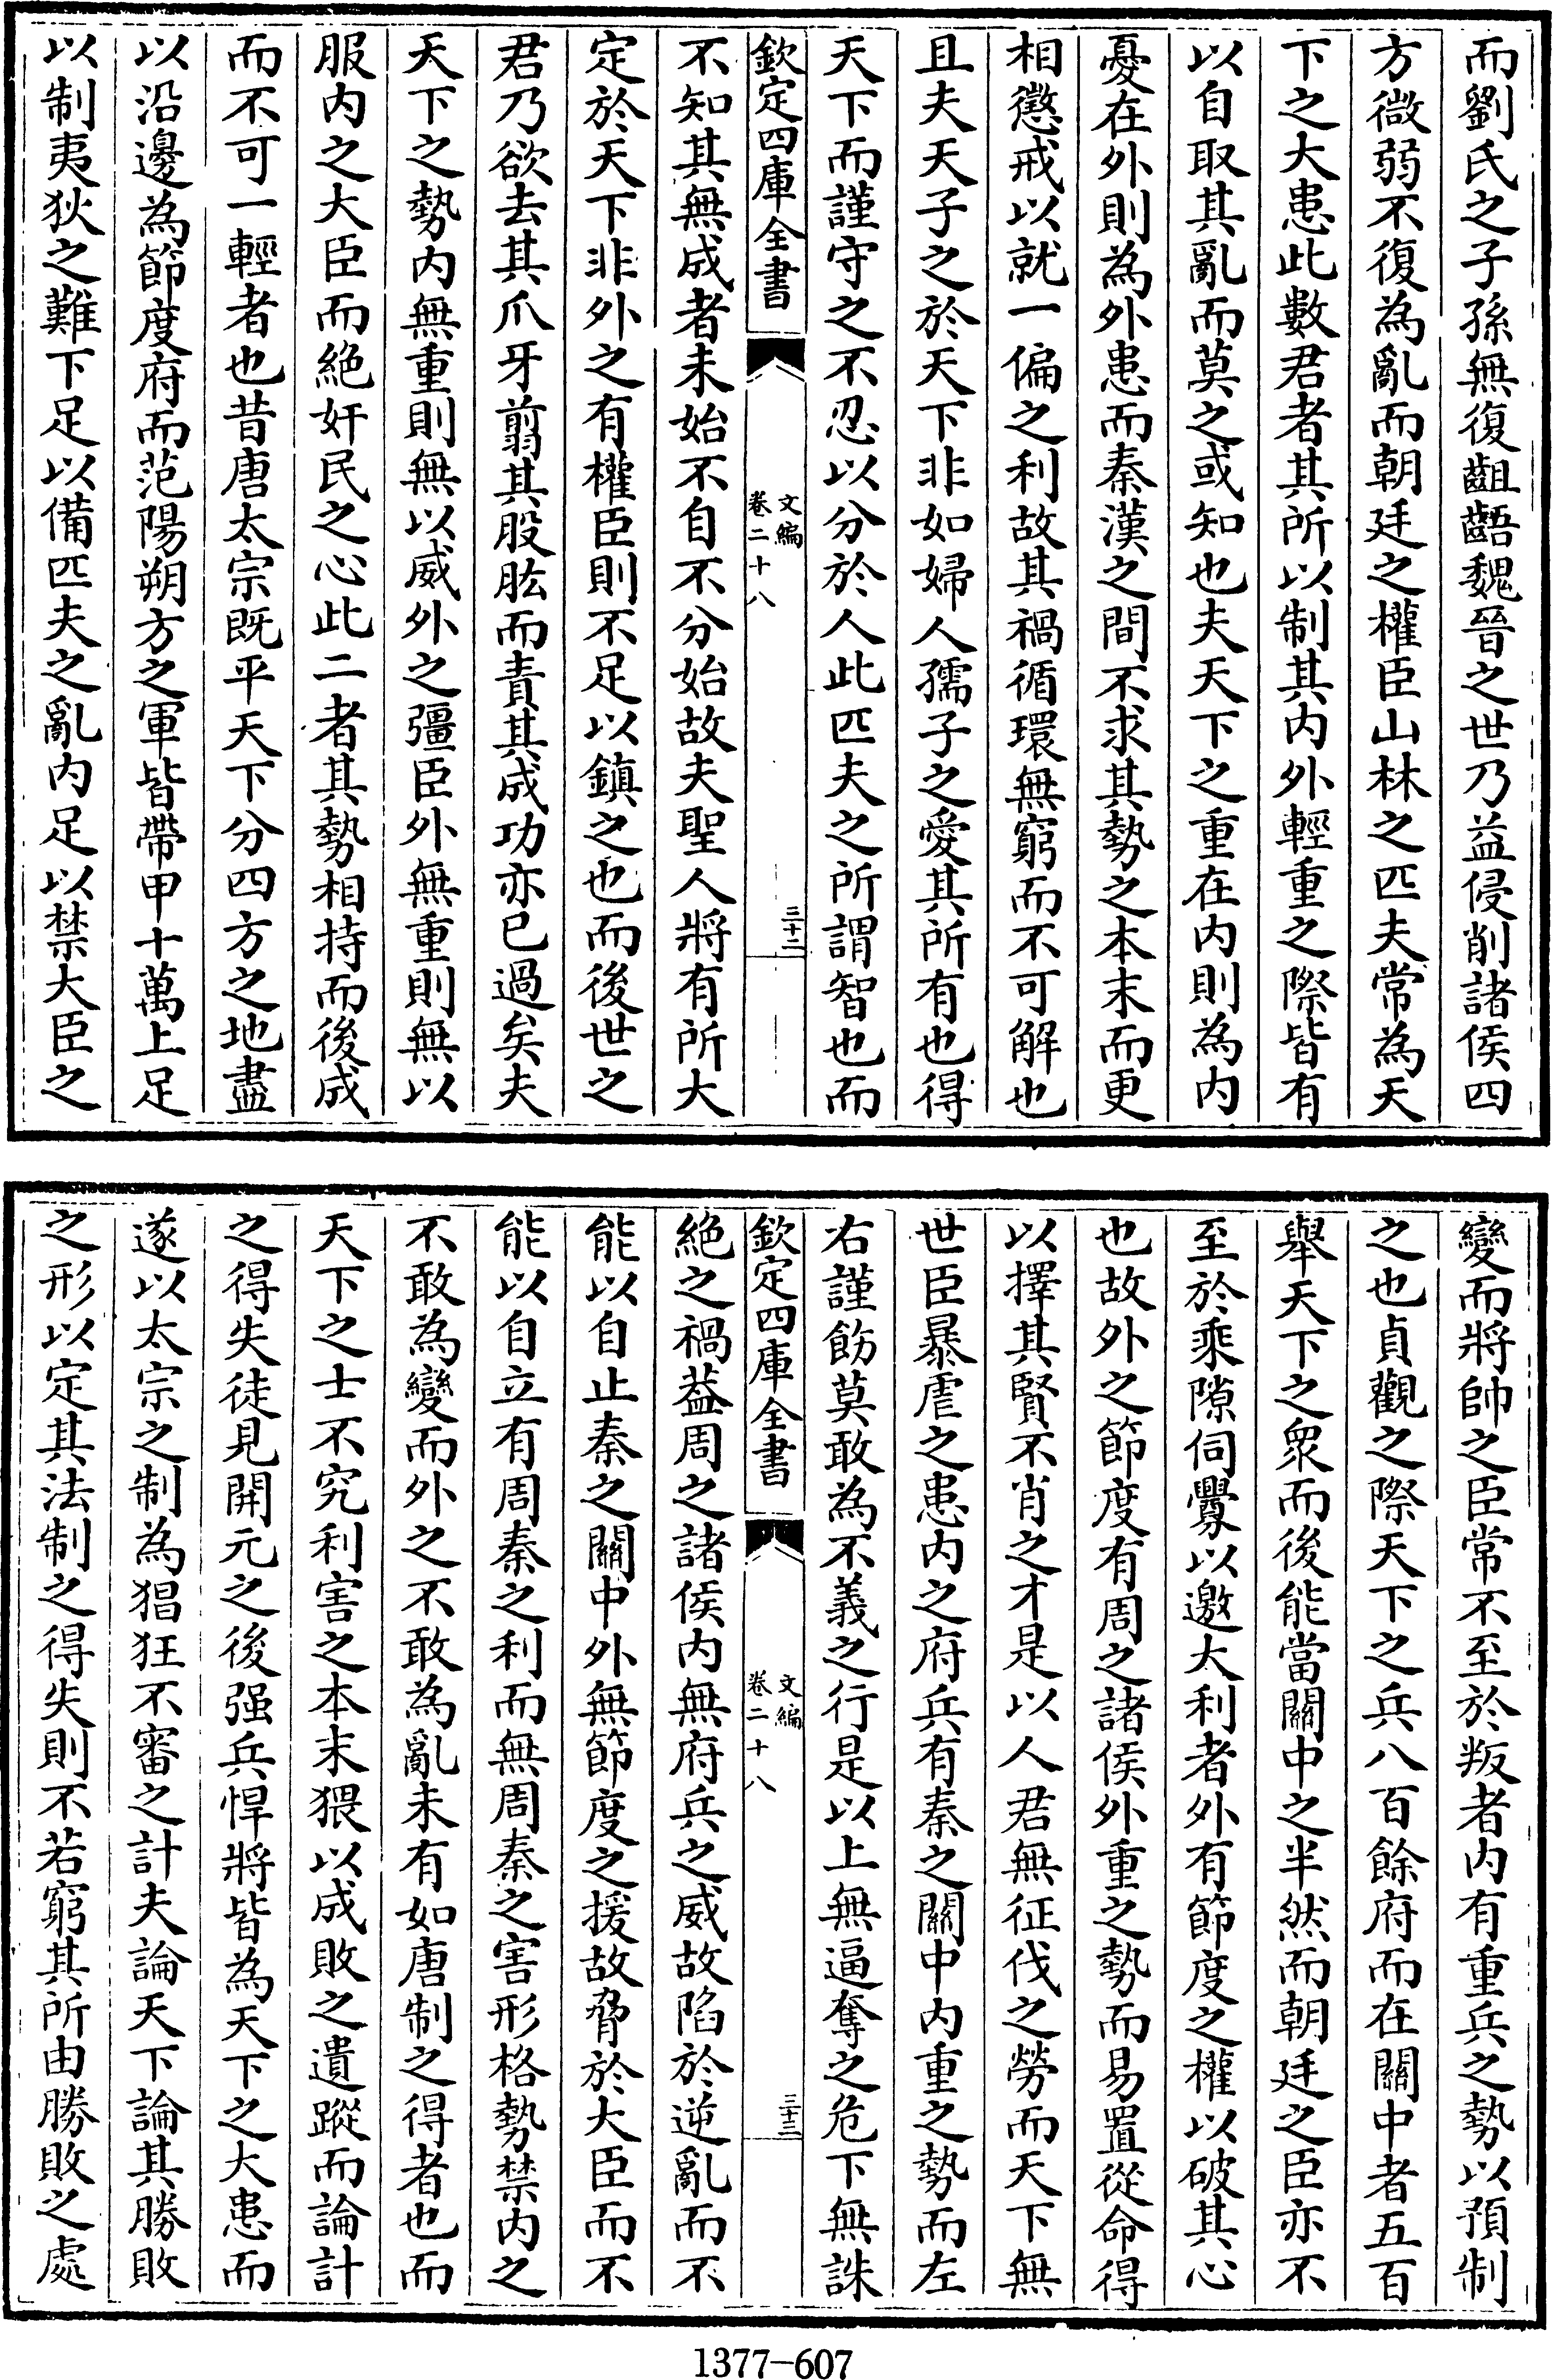 而劉氏之子孫無復齟齬魏晉之世乃益侵削諸侯四
方微弱不復為亂而朝廷之權臣山林之匹夫常為天
下之大患此數君者其所以制其内外輕重之際皆有
以自取其亂而莫之或知也夫天下之重在内則為内
憂在外則為外患而秦漢之間不求其勢之本末而更
相懲戒以就一偏之利故其禍循環無窮而不可解也
且夫天子之於天下非如婦人孺子之愛其所有也得
天下而謹守之不忍以分於人此匹夫之所謂智也而
欽定四庫全書
文編
卷二十八
三十二
不知其無成者未始不自不分始故夫聖人將有所大
定於天下非外之有權臣則不足以鎮之也而後世之
君乃欲去其爪牙翦其股肱而責其成功亦已過矣夫
天下之勢内無重則無以威外之彊臣外無重則無以
服内之大臣而絶奸民之心此二者其勢相持而後成
而不可一輕者也昔唐太宗既平天下分四方之地盡
以沿邊為節度府而范陽朔方之軍皆帶甲十萬上足
以制夷狄之難下足以備匹夫之亂内足以禁大臣之
變而將帥之臣常不至於叛者内有重兵之勢以預制
之也貞觀之際天下之兵八百餘府而在關中者五百
舉天下之衆而後能當關中之半然而朝廷之臣亦不
至於乘隙伺釁以邀大利者外有節度之權以破其心
也故外之節度有周之諸侯外重之勢而易置從命得
以擇其賢不肖之才是以人君無征伐之勞而天下無
世臣暴虐之患内之府兵有秦之關中内重之勢而左
右謹飭莫敢為不義之行是以上無逼奪之危下無誅
欽定四庫全書
文編
卷二十八
三十三
絶之禍葢周之諸侯内無府兵之威故陷於逆亂而不
能以自止秦之關中外無節度之援故脅於大臣而不
能以自立有周秦之利而無周秦之害形格勢禁内之
不敢為變而外之不敢為亂未有如唐制之得者也而
天下之士不究利害之本末猥以成敗之遺蹤而論計
之得失徒見開元之後强兵悍將皆為天下之大患而
遂以太宗之制為猖狂不審之計夫論天下論其勝敗
之形以定其法制之得失則不若窮其所由勝敗之處
1377-607